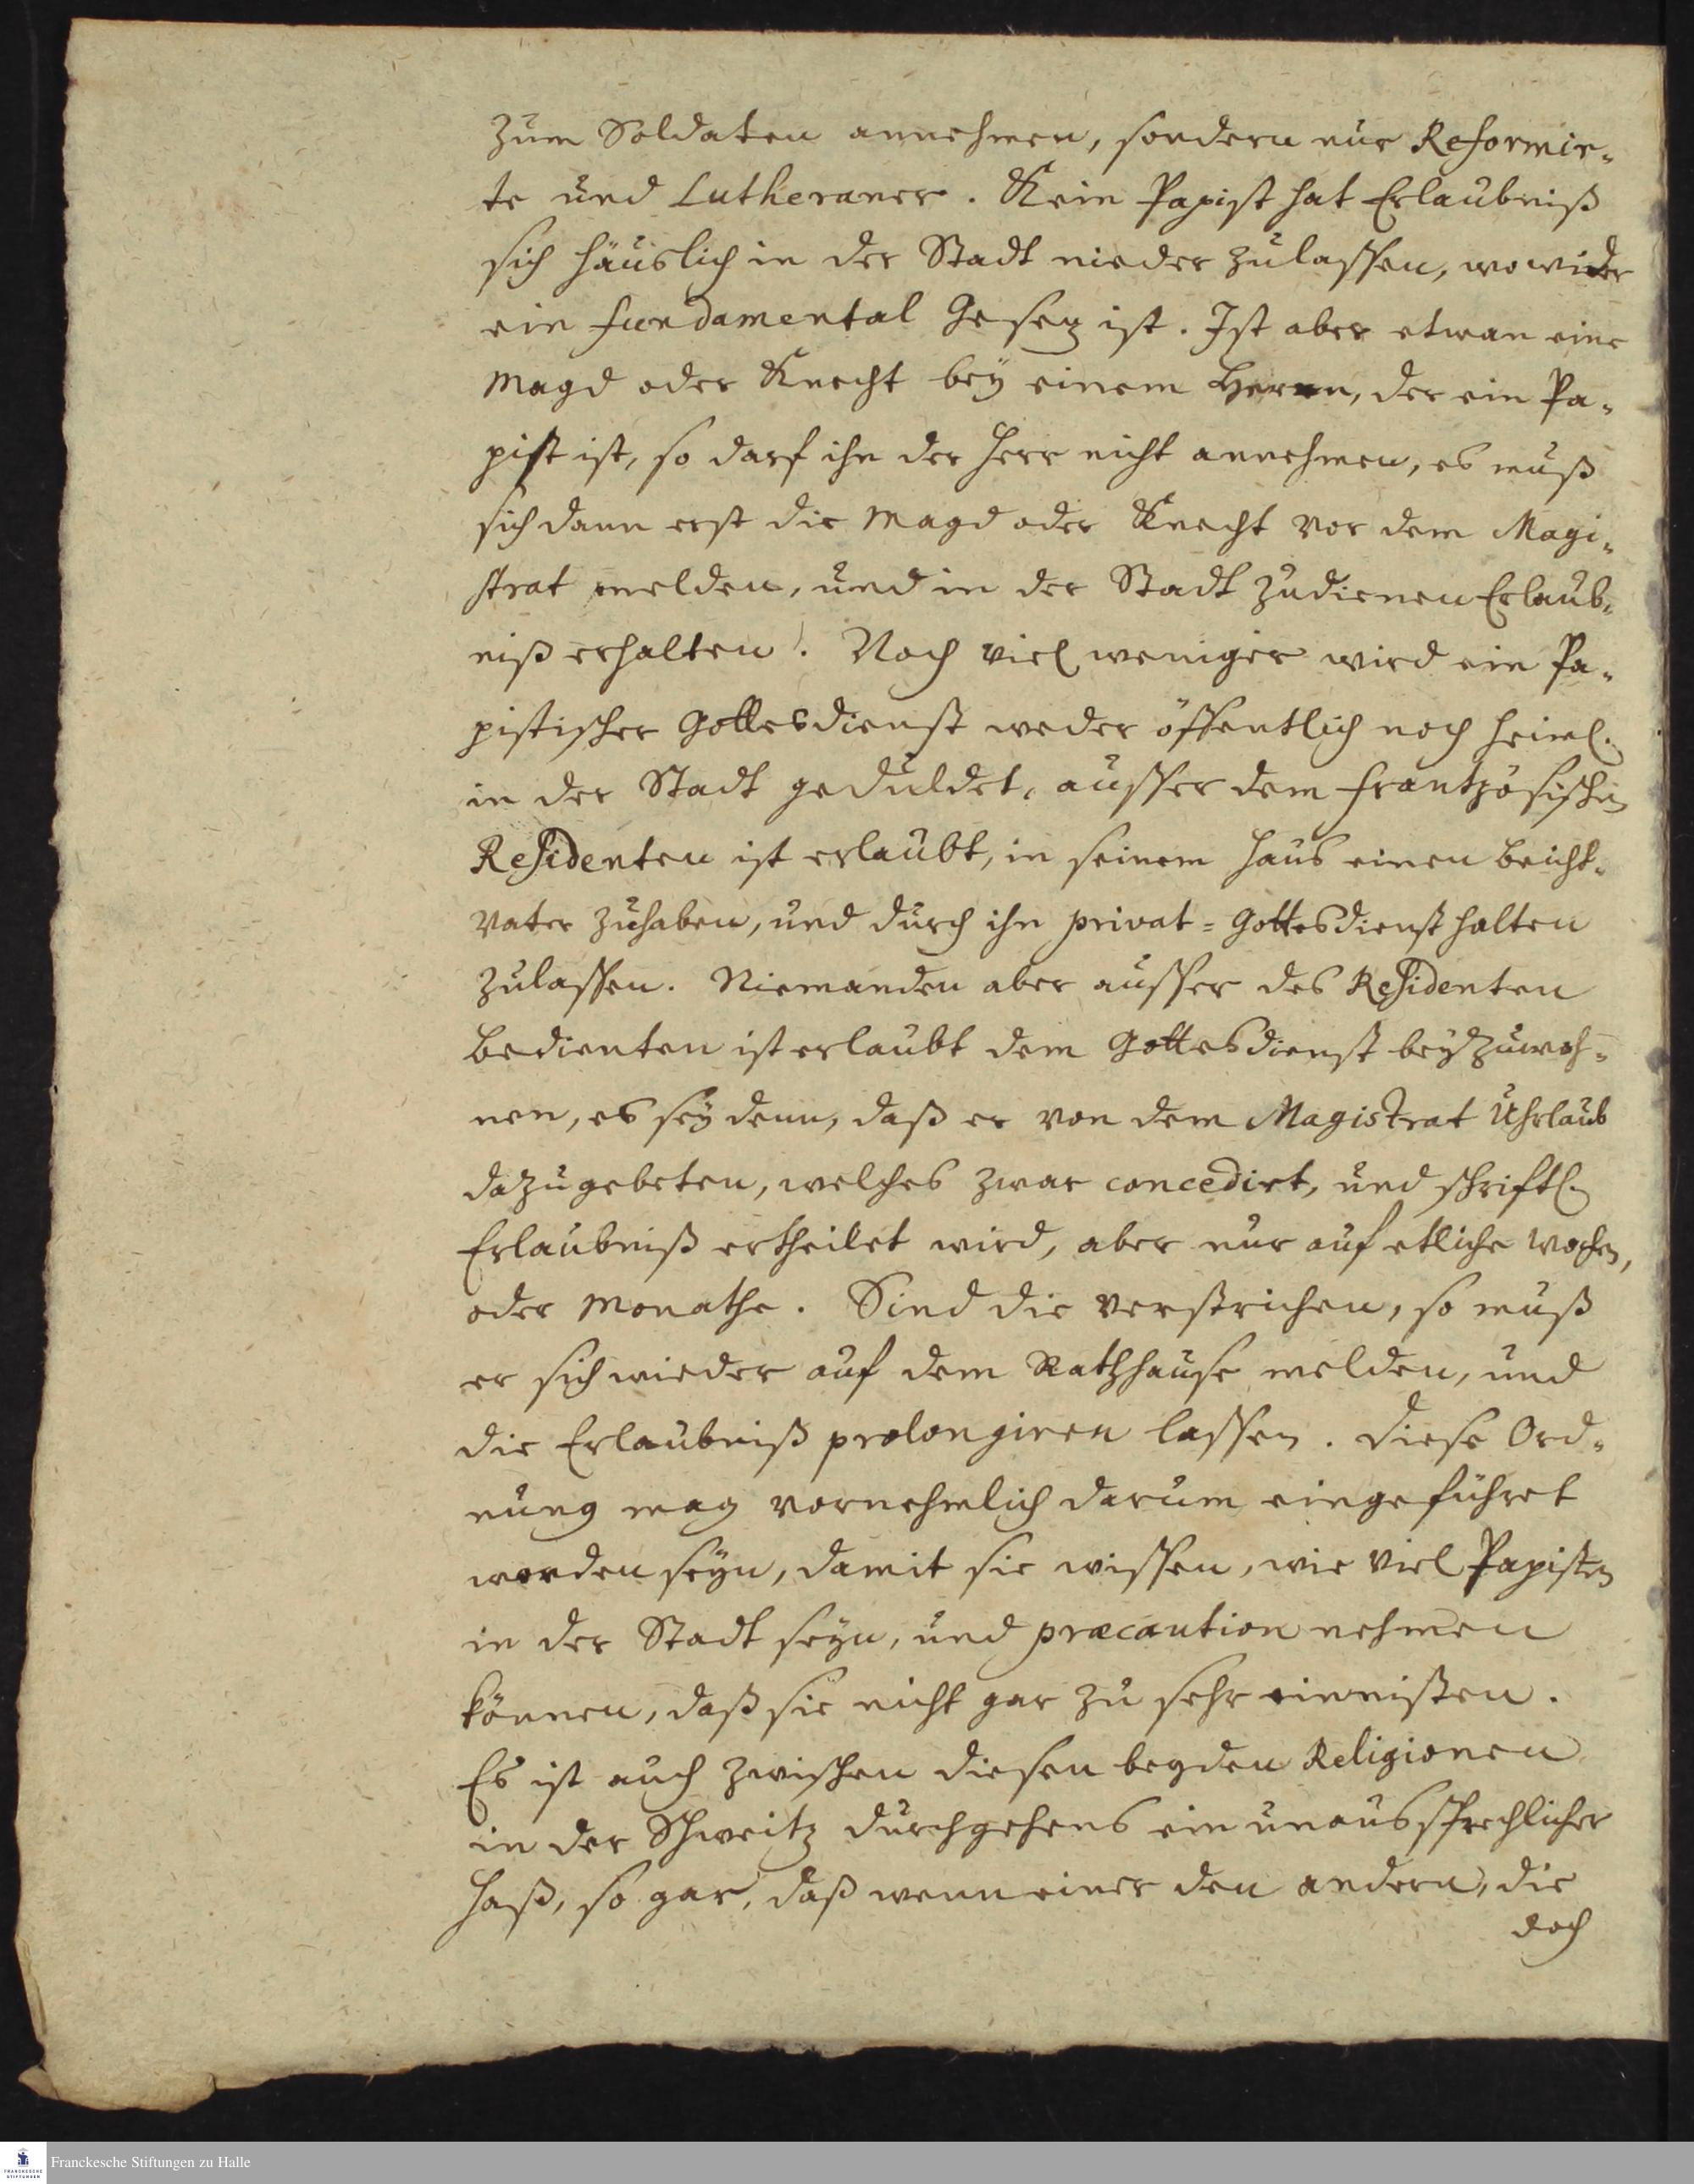 zum Soldaten annehmen, sondern nur Reformir-
te und Lutheraner. Kein Papist hat Erlaubniß
sich häuslich in der Stadt nieder zulassen, wowider
ein fundamental Gesetz ist. Ist aber etwan eine
Magd oder Knecht bey einem Herrn, der ein Pa-
pist ist, so darf ihn der Herr nicht annehmen, es muß
sich dann erst die Magd oder Knecht vor dem Magi-
strat melden, und in der Stadt zudienen Erlaub-
niß erhalten. Noch viel weniger wird ein Pa-
pistischer Gottesdienst weder öffentlich noch heiml.
in der Stadt geduldet, ausser dem frantzösischen
Residenten ist erlaubt, in seinem Haus einen Beicht-
vater zuhaben, und durch ihn privat-Gottesdienst halten
zulassen. Niemanden aber ausser des Residenten
Bedienten ist erlaubt dem Gottesdienst beyzuwoh-
nen, es sey denn, daß er von dem Magistrat Uhrlaub
dazu gebeten, welches zwar concedirt, und schriftl.
Erlaubniß ertheilet wird, aber nur auf etliche Wochen,
oder Monathe. Sind die verstrichen, so muß
er sich wieder auf dem Rathhause melden, und
die Erlaubniß prolongiren lassen. Diese Ord-
nung mag vornehmlich darum eingeführet
worden seyn, damit sie wissen, wie viel Papisten
in der Stadt seyn, und præcaution nehmen
können, daß sie nicht gar zu sehr einnisten.
Es ist auch zwischen diesen beyden Religionen
in der Schweitz durchgehens ein unaussprechlicher
Haß, so gar, daß wenn einer den andern, die
doch
Franckesche Stiftungen zu Halle
FRANCKESCHE
STIFTUNGEN